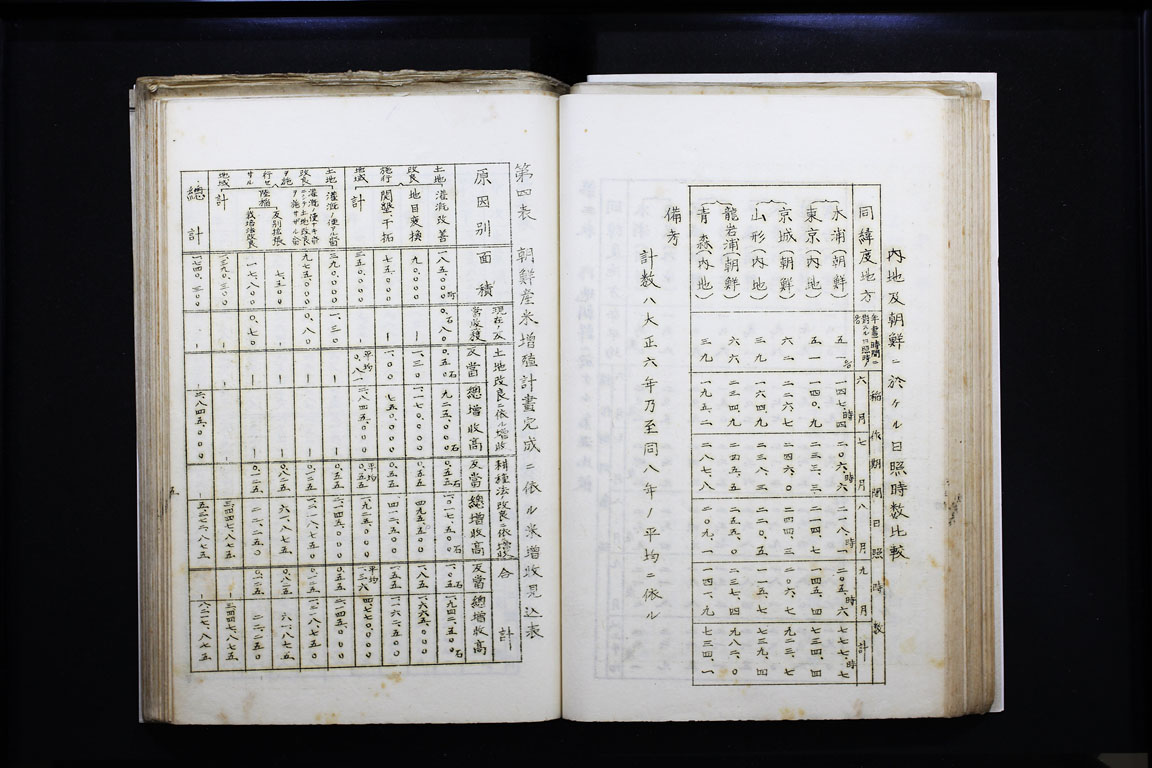 内地及朝鮮ニ於ケル日照時数比較
同緯度地方 稲作期間日照時数 六月 七月 八月 九月 計
木浦(朝鮮) 五一% 一四七、四時 二〇六、六時 二一八、一時 二〇五、六時 七七七、七時
東京(内地) 五一 一四〇、九 二三三、三 二一四、七 一四五、四 七三四、四
京城(朝鮮) 六二 二二六、七 二四六、〇 二四四、三 二〇六、七 九二三、七
山形(内地) 三九 一六四、九 二三八、三 二二〇、五 一一五、七 七三九、四
龍岩浦(朝鮮) 六六 二三四、九 二四五、五 二五五、〇 二三七、四 九八二、〇
青森(内地) 三九 一九五、二 二〇九、一 一四一、九 七三四、一
備考
計数ハ大正六年乃至同八年ノ平均ニ依ル
第四表 朝鮮産米増殖計畫完成ニ依ル米増收見込表
原因別 面積 土地改良ニ依ル増收 反當 總増收高 耕種法ノ改良ニ依ル増收 反當 總増收高 合計 反當 總増收高
土地改良施行地域
灌漑改善 一八五、〇〇〇町 〇、八〇石 〇、五石 九二五、〇〇〇石 〇、五五石 一、〇一七、五〇〇石 一、〇五石 一、九四二、五〇〇石
地目変換 九〇、〇〇〇 ― 一、三〇 一、一七〇、〇〇〇 〇、五五 四九五、〇〇〇 一、八五 一、六六五、〇〇〇
開墾干拓 七五、〇〇〇 ― 一、〇〇 七五〇、〇〇〇 〇、五五 四一二、五〇〇 一、五五 一、一六二、五〇〇
計 三五〇、〇〇〇 平均〇、八一 二、八四五、〇〇〇 平均〇、五五 一、九二五、〇〇〇 平均一、三六 四、七七〇、〇〇〇
土地改良ヲ施行セサル地域
灌漑ノ便アル畓 三九〇、〇〇〇 一、三〇 ― ― 〇、五五 二、一四五、〇〇〇 〇、五五 二、一四五、〇〇〇
九七五、〇〇〇 〇、八〇 ― ― 〇、一二五 一、二一八、七五〇 〇、一二五 一、二一八、七五〇
陸稲 反別拡張 七、五〇〇 ― ― ― 〇、八二五 六一、八七五 〇、八二五 六一、八七五
栽培法改良 一七、八〇〇 〇、七〇 ― ― 〇、一二五 二二、二五〇 〇、一二五 二二、二五〇
計 一、三九〇、三〇〇 ― ― ― ― 三、四四七、八七五 ― 三、四四七、八七五
總計 一、七四〇、三〇〇 ― ― 二、八四五、〇〇〇 ― 五、三七二、八七五 ― 八、二一七、八七五
五